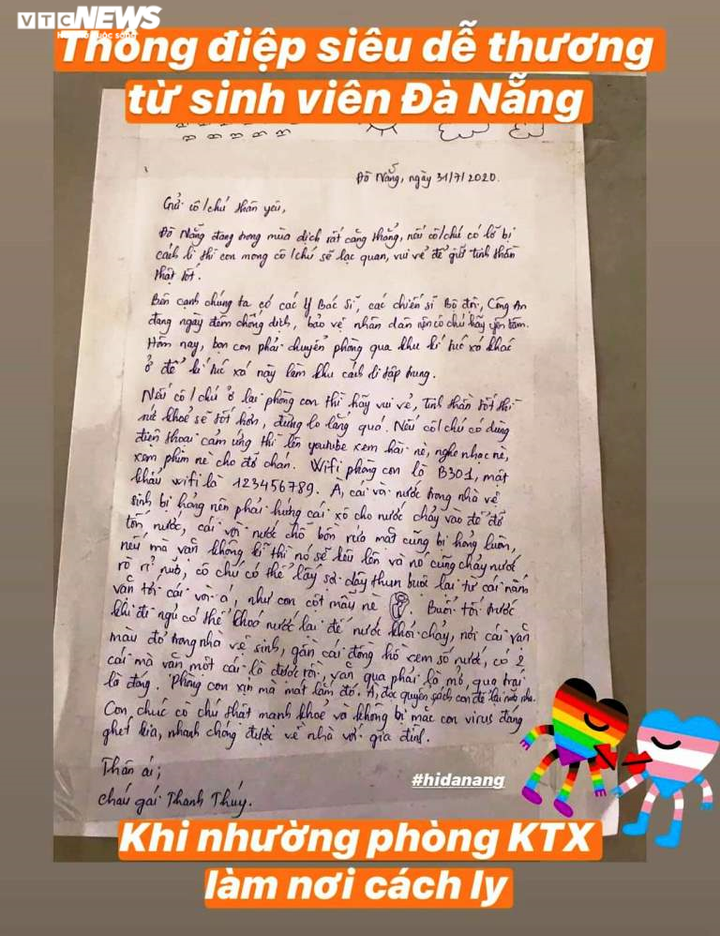 VTC NEWS
Thông điệp siêu dễ thương
từ sinh viên Đà Nẵng
Đà Nẵng, ngày 31/7/2020.
Gửi cô/chú thân yêu,
Đà Nẵng đang trong mùa dịch rất căng thẳng, nếu cô/chú có lỡ bị
cách li thì con mong cô/chú sẽ lạc quan, vui vẻ để giữ tinh thần
thật tốt.
Bên cạnh chúng ta có các Y Bác Sĩ, các chiến sĩ Bộ đội, Công An
đang ngày đêm chống dịch, bảo vệ nhân dân nên cô chú hãy yên tâm.
Hôm nay, bọn con phải chuyển phòng qua khu kí túc xá khác
ở để kí túc xá này làm khu cách li tập trung.
Nếu cô/chú ở lại phòng con thì hãy vui vẻ, tinh thần tốt thì
sức khoẻ sẽ tốt hơn, đừng lo lắng quá. Nếu cô/chú có dùng
điện thoại cảm ứng thì lên youtube xem hài nè, nghe nhạc nè,
xem phim nè cho đỡ chán. Wifi phòng con là B301, mật
khẩu wifi là 123456789. A, cái vòi nước trong nhà vệ
sinh bị hỏng nên phải hứng cái xô cho nước chảy vào để đỡ
tốn nước, cái vòi nước chỗ bồn rửa mặt cũng bị hỏng luôn,
nếu mà vặn không kĩ thì nó sẽ kêu lên và nó cũng chảy nước
rò rỉ nữa, cô chú có thể lấy sợi dây thun buộc lại từ cái nắm
vặn tới cái vòi á, như con cột mấy nè. Buổi tối trước
khi đi ngủ có thể khoá nước lại để nước khỏi chảy, nơi cái van
màu đỏ trong nhà vệ sinh, gần cái đồng hồ xem số nước, có 2
cái mà vặn một cái là được rồi, vặn qua phải là mở, qua trái
là đóng. Phòng con xịn mà mát lắm đó. A, đọc quyển sách con để lại nữa nha.
Con chúc cô chú thật mạnh khoẻ và không bị mắc con virus đáng
ghét kia, nhanh chóng được về nhà với gia đình.
Thân ái;
cháu gái Thanh Thúy.
#hidanang
Khi nhường phòng KTX
làm nơi cách ly